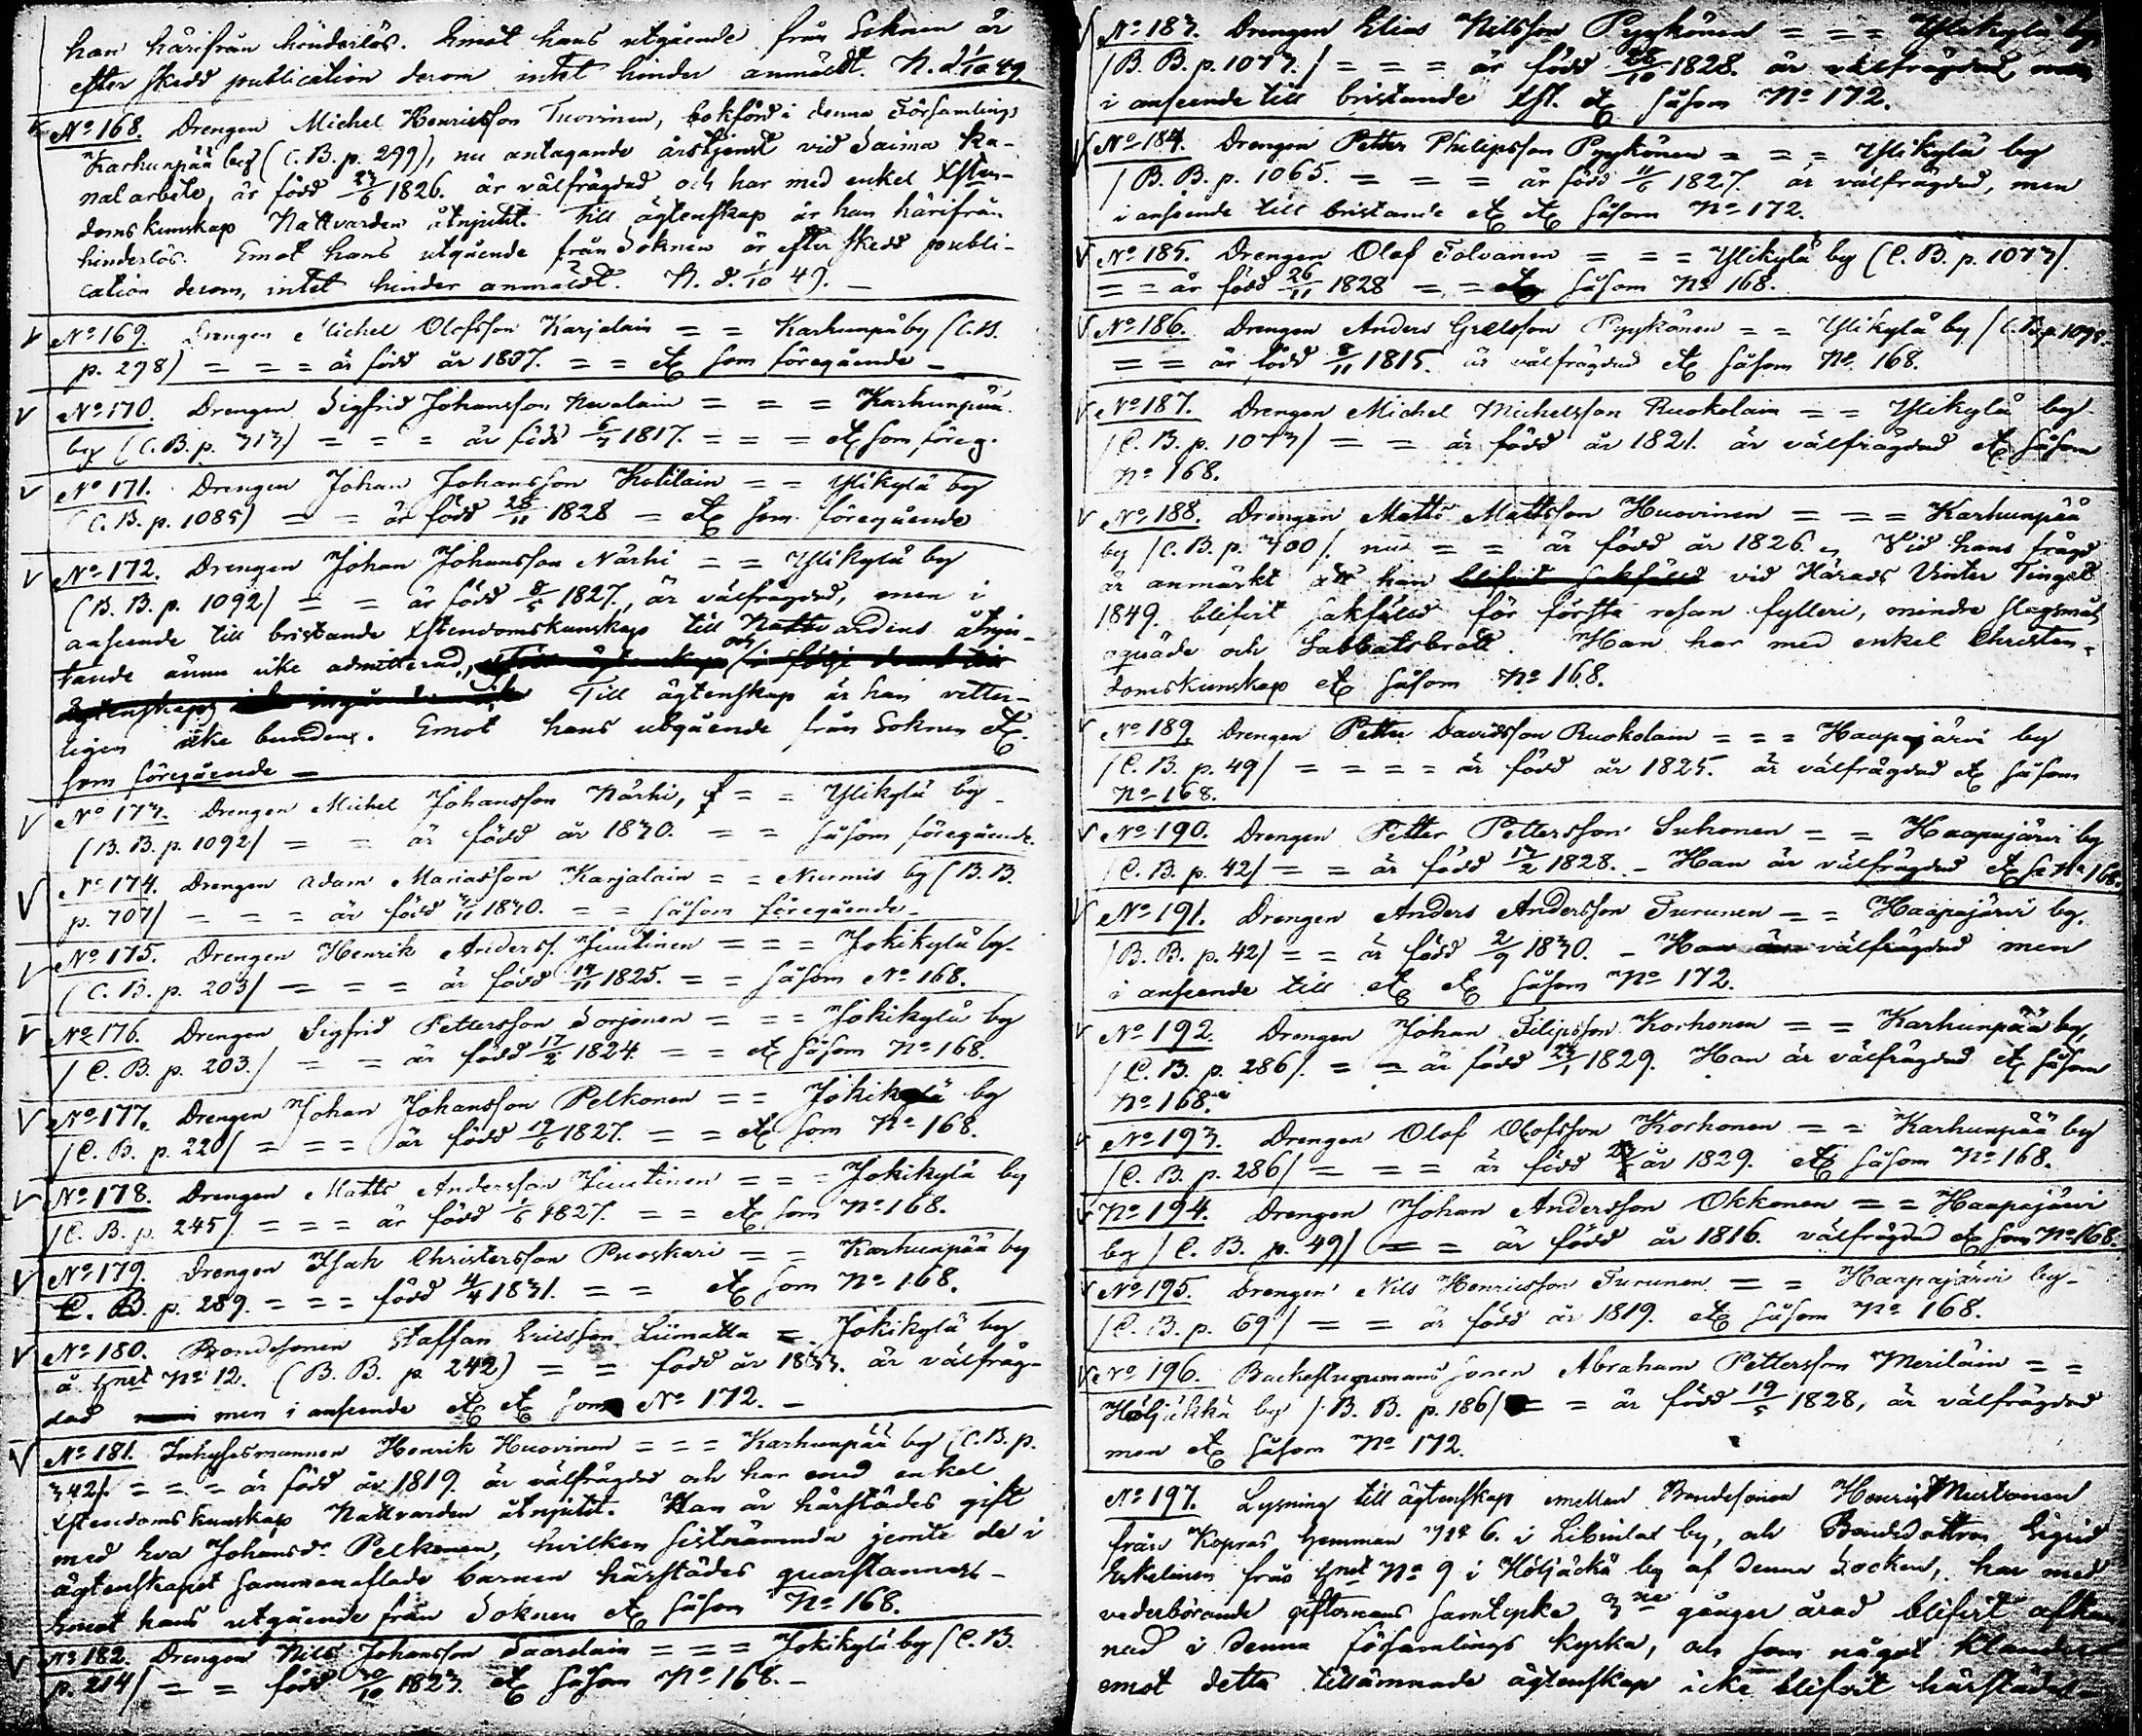 han härifrån hinderlös. Emot hans utgående från Soknen är
efter skedd publication derom intet hinder anmäldt. N. d. 1/10 49
No 168. Drengen Michel Henricsson Tuovinen, bokförd i denna Församlings
Karhunpää by (C. B. p. 299), nu antagande årstjenst vid Saima Ka-
nal arbete, är född 23/6 1826. är välfrägdad och har med enkel Xsten-
domskunskap Nattvarden åtnjutit. Till ägtenskap är han härifrån
hinderlös. Emot hans utgående från Soknen är efter skedd publi-
cation derom, intet hinder anmäldt. N. d. 1/10 49. _
No 169. Drengen Michel Olofsson Karjalain = = Karhunpä by (C. B.
p. 298) = = = är född år 1807. = = etc som föregående _
No 170. Drengen Sigfrid Johansson Nevalain = = = Karhunpää
by (C. B. p. 313) = = = är född 6/7 1817. = = = etc som föreg.
No 171. Drengen Johan Johansson Kotilain = = Ylikylä by
(C. B. p. 1085) = = är född 28/11 1828 = etc som föregående
No 172. Drengen Johan Johansson Närhi = = Ylikylä by
(B. B. p. 1092) = = är född 8/5 1827., är välfrägdad, men i
anseende till bristande Xstendomskunskap till Nattvardens åtnju-
tande ännu icke admitterad,
Till ägtenskap är han vetter-
ligen icke bunden. Emot hans utgående från Soknen etc.
som föregående _
No 173. Drengen Michel Johansson Närhi, = = Ylikylä by
(B. B. p. 1092) = = är född år 1830. = = såsom föregående.
No 174. Drengen Adam Mariasson Karjalain = = Nurmis by (B. B.
p. 707) = = = är född 3/11 1830. = = såsom föregående _
No 175. Drengen Henrik Anderss. Juutinen = = = Jokikylä by
(C. B. p. 203) = = = är född 14/11 1825. = = såsom No 168.
No 176. Drengen Sigfrid Pettersson Sorjonen = = = Jokikylä by
(C. B. p. 203.) = = är född 17/2 1824. = = etc såsom No 168.
No 177. Drengen Johan Johansson Pelkonen = = Jokikylä by
(C. B. p. 220) = = = är född 19/6 1827. = = etc som No 168.
No 178. Drengen Matts Andersson Juutinen = = = Jokikylä by
(C. B. p. 245) = = = är född 1/6 1827. = = etc som No 168.
No 179. Drengen Isak Christersson Puoskari = = Karhunpää by
C. B. p. 289. = = = född 4/4 1831. = = etc som No 168.
No 180. Bondesonen Staffan Ericsson Liimatta = Jokikylä by
å Hnet No 12. (B. B. p. 242) = = född år 1833. är välfräg-
dad men i anseende etc etc som No 172. _
No 181. Inhysesmannen Henrik Huovinen = = = Karhunpää by (C. B. p.
342). = = = är född år 1819. är välfrägdad och har med enkel
Xstendomskunskap Nattvarden åtnjutit. Han är härstädes gift
med Eva Johansdr Pelkonen, hvilken sistnämnda jemte de i
ägtenskapet sammanaflade barnen härstädes quarstannar. _
Emot hans utgående från Soknen etc såsom No 168.
No 182. Drengen Nils Johansson Saarelain = = = Jokikylä by (C. B.
p. 214) = = född 30/10 1823. etc såsom No 168. _
No 183. Drengen Elias Nilsson Pyykönen = = = Ylikylä by
(B. B. p. 1073.) = = = är född 28/10 1828. är välfrägdad, men
i anseende till bristande Xst. etc såsom No 172.
No 184. Drengen Petter Philipsson Pyykönen = = = Ylikylä by
(B. B. p. 1065. = = = är född 11/6 1827. är välfrägdad, men
i anseende till bristande etc etc såsom No 172.
No 185. Drengen Olof Tolvanen = = = Ylikylä by (C. B. p. 1073).
= = är född 26/11 1828 = = etc såsom No 168.
No 186. Drengen Anders Grelsson Pyykönen = = Ylikylä by (C. B. p. 1098.
= = är född 8/11 1815. är välfrägdad etc såsom No. 168.
No 187. Drengen Michel Michelsson Ruokolain = = Ylikylä by
(C. B. p. 1073) = = är född år 1821. är välfrägdad etc såsom
No 168.
No 188. Drengen Matts Mattsson Huovinen = = = Karhunpää
by (C. B. p. 300). nu = = är född år 1826. = Vid hans frägd
är anmärkt att han blifvit sakfälld vid Härads Vinter Tinget
1849. blifvit sakfälld för första resan fylleri, mindre slagsmål
oquäde och Sabbatsbrott. Han har med enkel Christen-
domskunskap etc såsom No 168.
No 189. Drengen Petter Davidsson Ruokolain = = = Haapajärvi by
(C. B. p. 49) = = = = är född år 1825. är välfrägdad etc såsom
No 168.
No 190. Drengen Petter Pettersson Suhonen = = Haapajärvi by
(C. B. p. 42) = = är född 17/2 1828. _ Han är välfrägdad etc se No 168.
No 191. Drengen Anders Andersson Turunen = = Haapajärvi by.
(B. B. p. 42) = = är född 2/9 1830. _ Han är välfrägdad men
i anseende till etc etc såsom No 172.
No 192. Drengen Johan Filipsson Korhonen = = Karhunpää by,
(C. B. p. 286). = = är född 23/1 1829. Han är välfrägdad etc såsom
No 168.
No 193. Drengen Olof Olofsson Korhonen = = Karhunpää by
(C. B. p. 286) = = = är född år 1829. etc såsom No 168.
No 194. Drengen Johan Andersson Okkonen = = Haapajärvi
by (C. B. p. 49) = = är född år 1816. välfrägdad etc som No 168.
No 195. Drengen Nils Henricsson Turunen = = Haapajärvi by _
(C. B. p. 69) = = är född år 1819. etc såsom No 168.
No 196. Backstugumans sonen Abraham Pettersson Meriläin = =
Höljäkkä by (B. B. p. 186) = = är född 19/5 1828, är välfrägdad
men etc såsom No 172.
No 197. Lysning till ägtenskap emellan Bondesonen Henric Mustonen
från Kopras Hemman No 6. i Libuilat by, och Bondedottren Sigrid
Eskelinen från Hnet No 9 i Höljäckä by af denna Socken, har med
vederbörande giftomans samtycke 3ne gånger å rad blifvit afkun-
nad i denna församlings kyrka, och som något klander
emot detta tillämnade ägtenskap icke blifvit härstädes